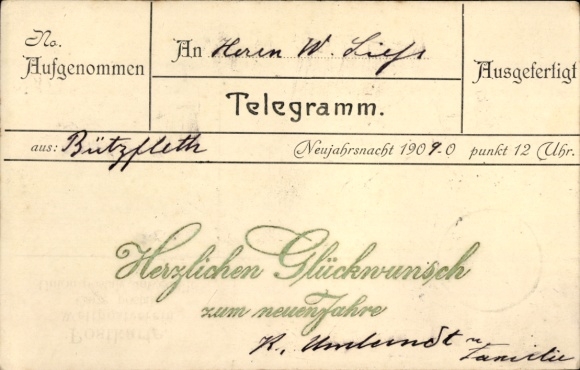 No.
Aufgenommen
An Herrn W.
Ausgefertigt
Telegramm.
aus: Bützfleth
Neujahrsnacht 1909-0 punkt 12 Uhr.
Herzlichen Glückwunsch
zum neuen Jahre
K. u.
Familie
Postkarte